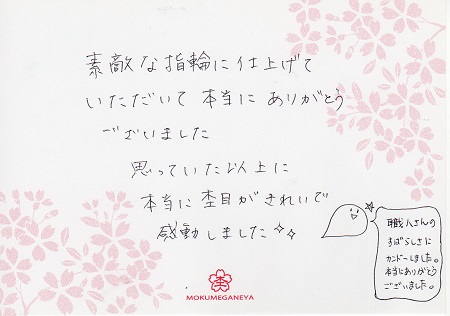 素敵な指輪に仕上げて
いただいて本当にありがとう
ございました
思っていた以上に
本当に杢目がきれいで
感動しました
職人さんの
すばらしさに
カンドーしました。
本当にありがとう
ございました。
杢
MOKUMEGANEYA